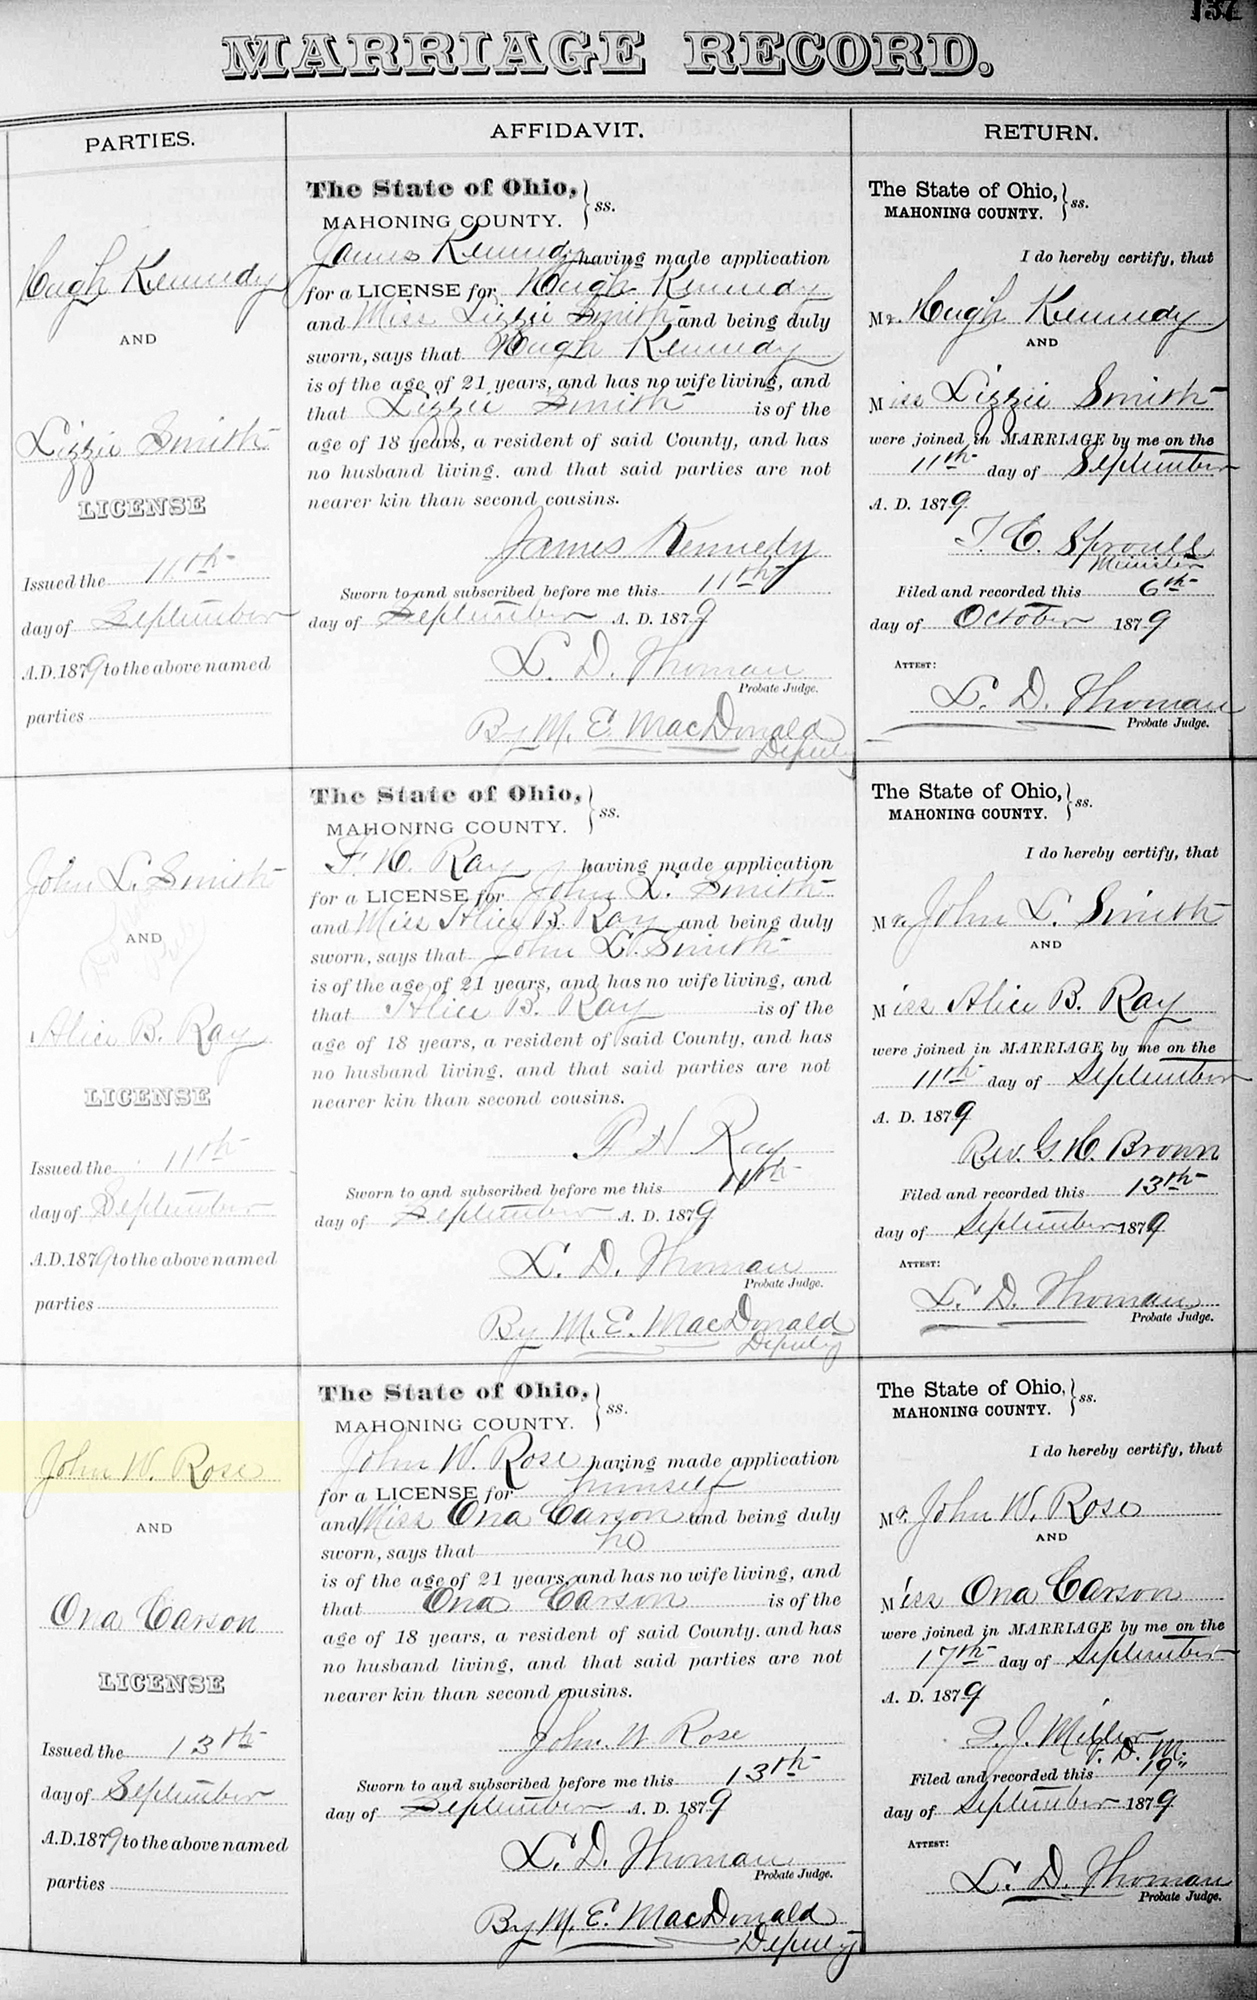 137
MARRIAGE RECORD.
PARTIES.
AFFIDAVIT.
RETURN.
Hugh Kennedy
AND
Lizzie Smith
LICENSE
Issued the 11th
day of September
A.D. 1879 to the above named
parties
The State of Ohio, } ss.
MAHONING COUNTY.
James Kennedy having made application
for a LICENSE for Hugh Kennedy
and Miss Lizzie Smith and being duly
sworn, says that Hugh Kennedy
is of the age of 21 years, and has no wife living, and
that Lizzie Smith is of the
age of 18 years, a resident of said County, and has
no husband living, and that said parties are not
nearer kin than second cousins.
James Kennedy
Sworn to and subscribed before me this 11th
day of September A. D. 1879
L. D. Thoman
Probate Judge.
By M. E. MacDonald
Deputy
The State of Ohio, } ss.
MAHONING COUNTY.
I do hereby certify, that
Mr. Hugh Kennedy
AND
Miss Lizzie Smith
were joined in MARRIAGE by me on the
11th day of September
A. D. 1879
T. C. Sproull
Minister
Filed and recorded this 6th
day of October 1879
ATTEST:
L. D. Thoman
Probate Judge.
John L. Smith
AND
Alice B. Ray
LICENSE
Issued the 11th
day of September
A.D. 1879 to the above named
parties
The State of Ohio, } ss.
MAHONING COUNTY.
F. H. Ray having made application
for a LICENSE for John L. Smith
and Miss Alice B. Ray and being duly
sworn, says that John L. Smith
is of the age of 21 years, and has no wife living, and
that Alice B. Ray is of the
age of 18 years, a resident of said County, and has
no husband living, and that said parties are not
nearer kin than second cousins.
H Ray
Sworn to and subscribed before me this 11th
day of September A. D. 1879
L. D. Thoman
Probate Judge.
By M. E. MacDonald
Deputy
The State of Ohio, } ss.
MAHONING COUNTY.
I do hereby certify, that
Mr. John L. Smith
AND
Miss Alice B. Ray
were joined in MARRIAGE by me on the
11th day of September
A. D. 1879
Rev. G. H. Brown
Filed and recorded this 13th
day of September 1879
ATTEST:
L. D. Thoman
Probate Judge.
John W. Rose
AND
Ona Carson
LICENSE
Issued the 13th
day of September
A.D. 1879 to the above named
parties
The State of Ohio, } ss.
MAHONING COUNTY.
John W. Rose having made application
for a LICENSE for himself
and Miss Ona Carson and being duly
sworn, says that he
is of the age of 21 years, and has no wife living, and
that Ona Carson is of the
age of 18 years, a resident of said County, and has
no husband living, and that said parties are not
nearer kin than second cousins.
John W Rose
Sworn to and subscribed before me this 13th
day of September A. D. 1879
L. D. Thoman
Probate Judge.
By M. E. MacDonald
Deputy
The State of Ohio, } ss.
MAHONING COUNTY.
I do hereby certify, that
Mr. John W. Rose
AND
Miss Ona Carson
were joined in MARRIAGE by me on the
17th day of September
A. D. 1879
J. Miller
V. D. M.
Filed and recorded this 19"
day of September 1879
ATTEST:
L. D. Thoman
Probate Judge.